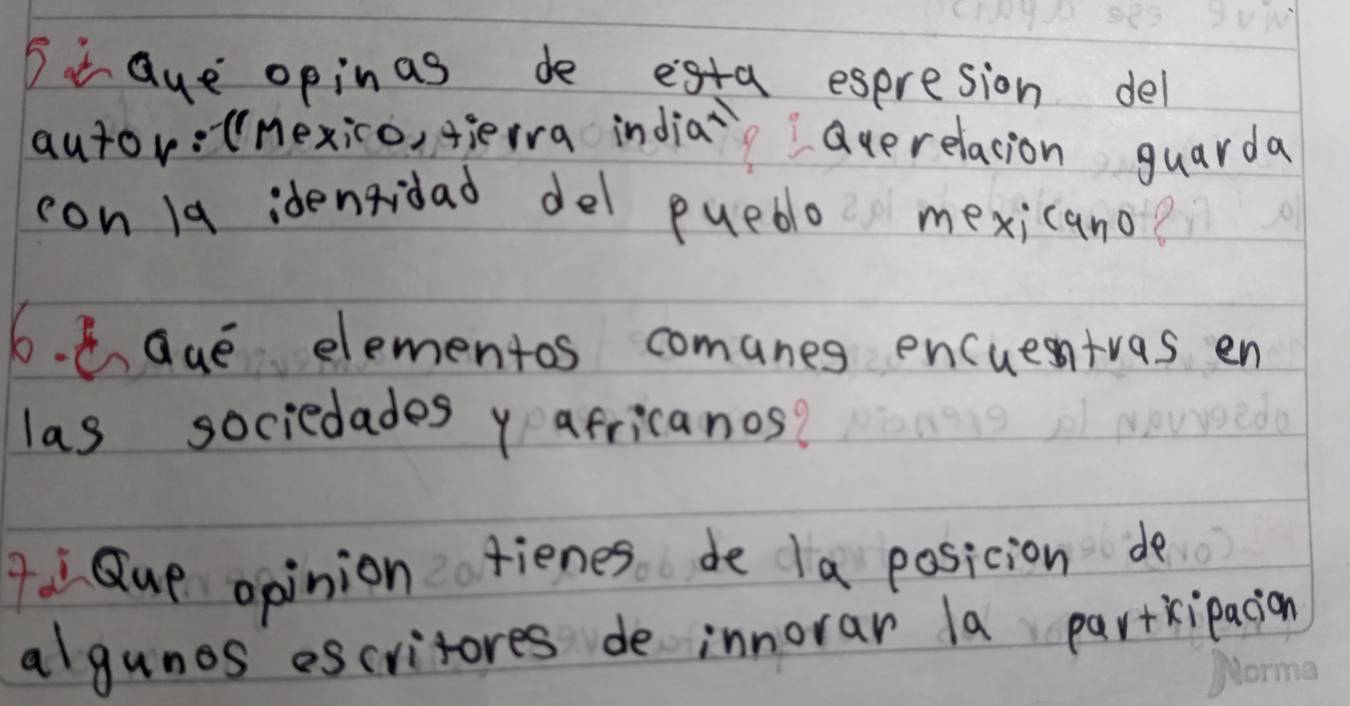 5.¿Qué opinas de esta espresion del
autor: "Mexico, tierra india"? ¿Querelacion guarda
con la identidad del pueblo mexicano?
6.¿Qué elementos comunes encuentras en
las sociedades y africanos?
7.¿Que opinion tienes de la posicion de
algunos escritores de innorar la participacion
Norma